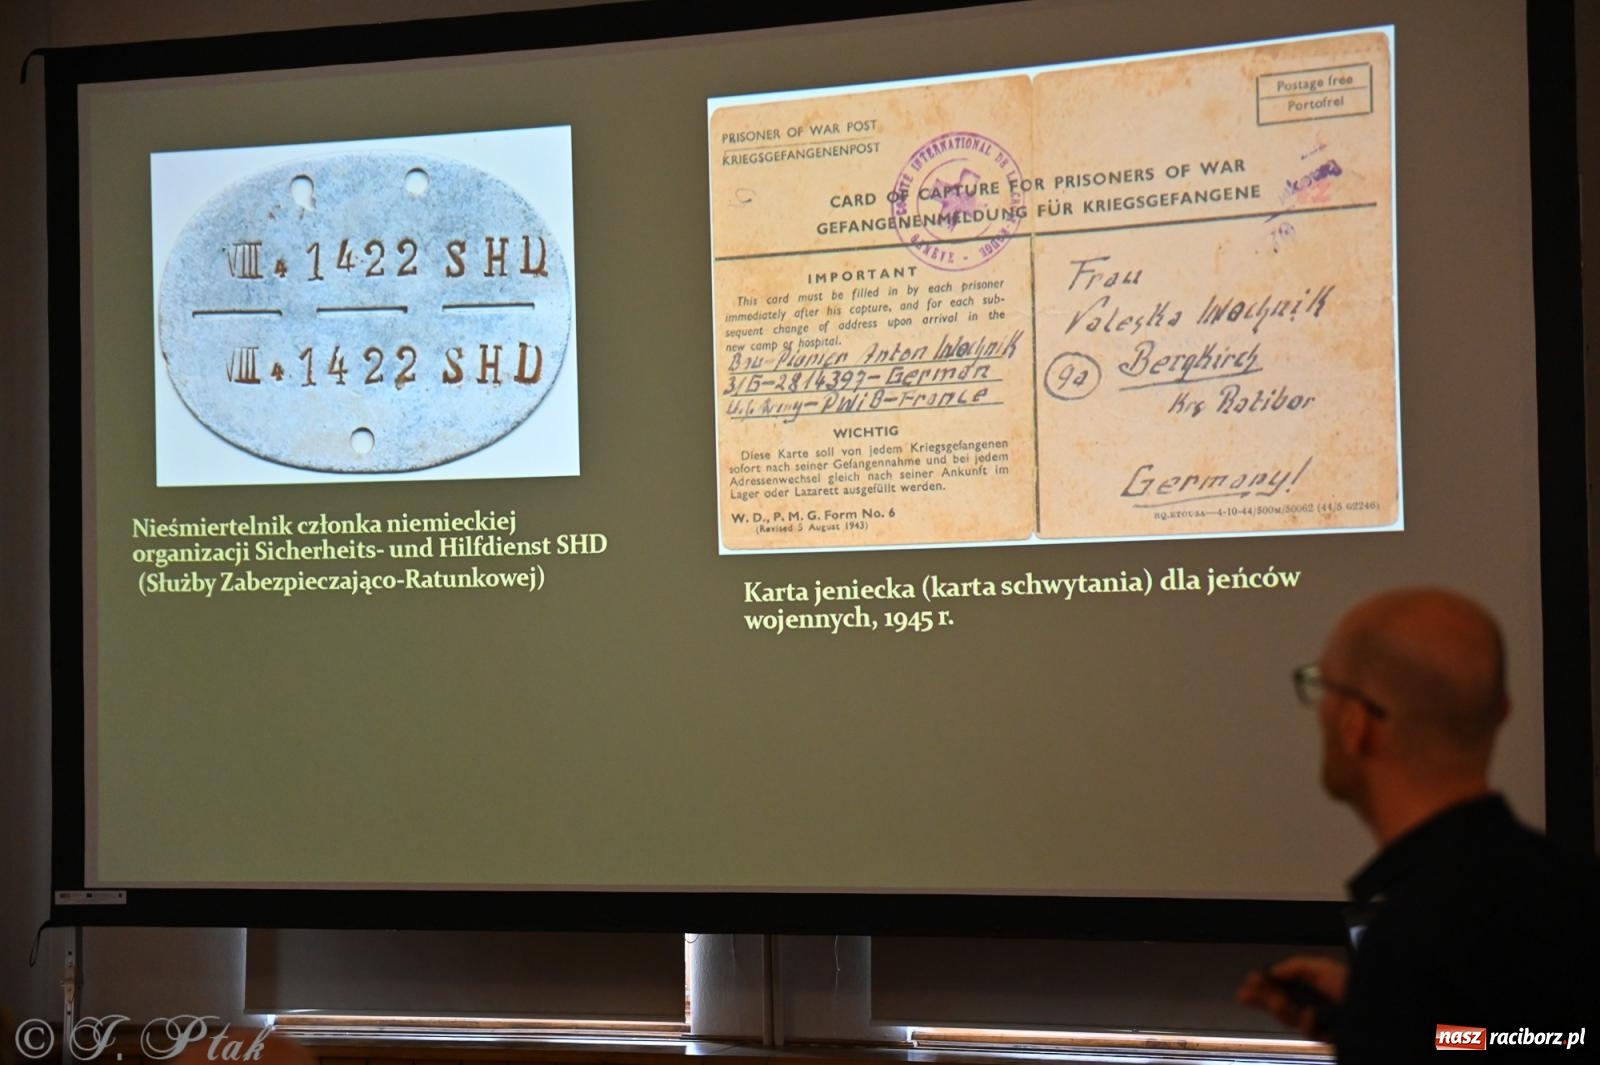 VIII. 4 1422 SHD
VIII. 4 1422 SHD
Nieśmiertelnik członka niemieckiej
organizacji Sicherheits- und Hilfdienst SHD
(Służby Zabezpieczająco-Ratunkowej)
PRISONER OF WAR POST
KRIEGSGEFANGENENPOST
Postage free
Portofrei
COMITÉ INTERNATIONAL DE LA CROIX-ROUGE - GENÈVE -
CARD OF CAPTURE FOR PRISONERS OF WAR
GEFANGENENMELDUNG FÜR KRIEGSGEFANGENE
IMPORTANT
This card must be filled in by each prisoner
immediately after his capture, and for each sub-
sequent change of address upon arrival in the
new camp or hospital.
Bau-Pionier Anton Wochnik
31G-2814397-German
U.S. Army-PWIB-France
WICHTIG
Diese Karte soll von jedem Kriegsgefangenen
sofort nach seiner Gefangennahme und bei jedem
Adressenwechsel gleich nach seiner Ankunft im
Lager oder Lazarett ausgefüllt werden.
W. D., P. M. G. Form No. 6
(Revised 5 August 1943)
Frau
Valeska Wochnik
9a Bergkirch
Krs Ratibor
Germany!
HQ.ETOUSA—4-10-44/500M/50062 (44/5 G2246)
Karta jeniecka (karta schwytania) dla jeńców
wojennych, 1945 r.
© J. Ptak
nasz raciborz.pl